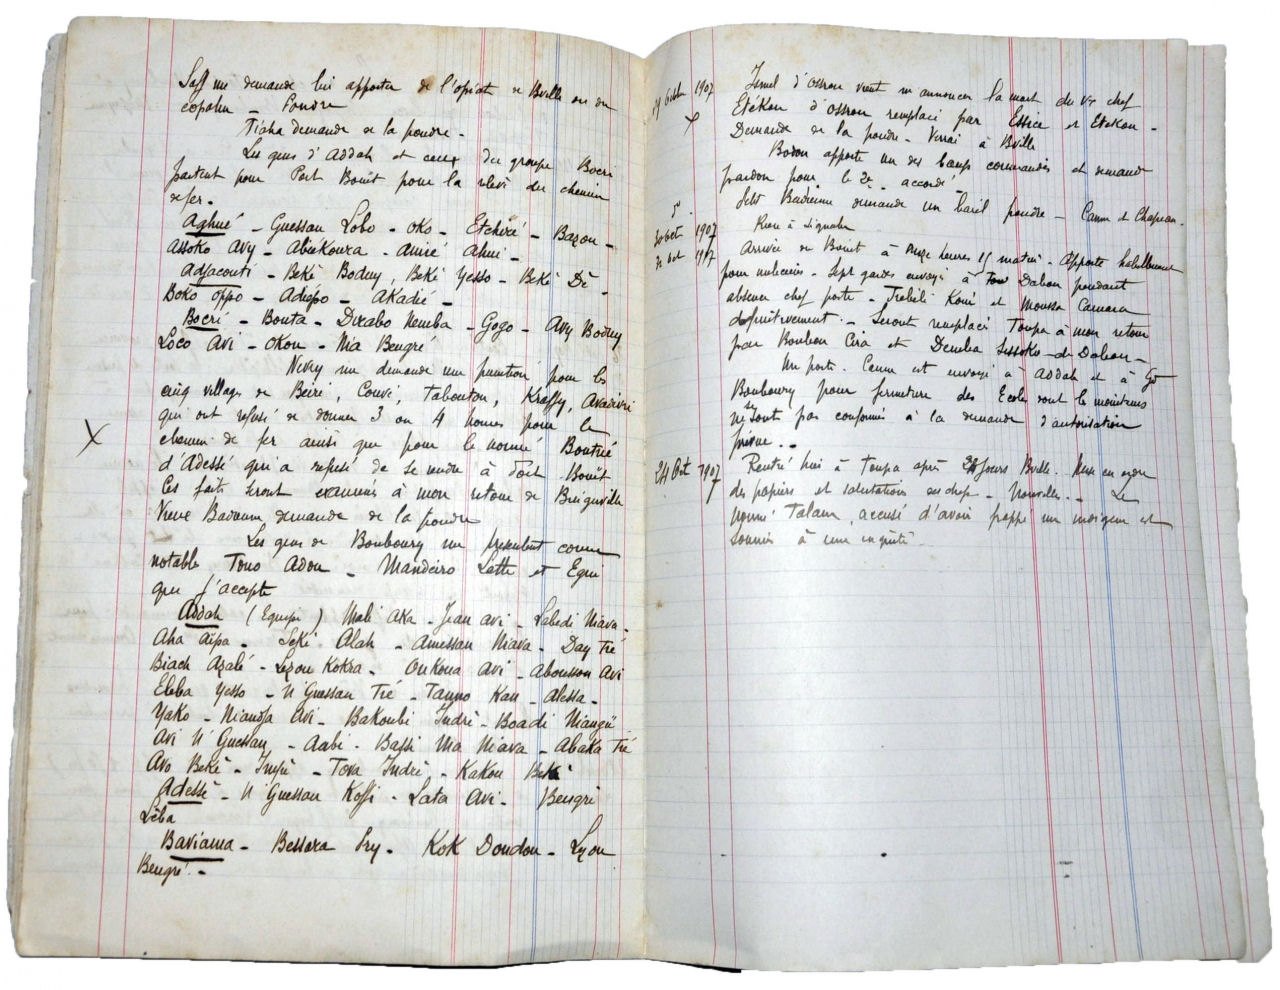 me demande lui apporter de l'opiat de Bville ou du
copahu - Poudre
Tiaha demande de la poudre -
Les gens d'Addah et ceux du groupe Bocri
partent pour Port Bouët pour la relève du chemin
de fer -
Aghué - Guessan Lobo - Oko - Etchéré - Bazon -
Assoko Avy - Abiékoura - Amiré Ahui -
Adjacouti - Beké Boduy, Beké Yesso - Beké Dé -
Boko Oppo - Adiépo - Akadié -
Bocri - Bouta - Dixabo Nemba - Gogo - Avy Boduy
Loco Avi - Okou - Nia Beugré
me demande une punition pour les
cinq villages de Béiri, Couvé, Tabouton, Kraffy, Avadivri
qui ont refusé de donner 3 ou 4 hommes pour le
X chemin de fer ainsi que pour le nommé Boutrié
d'Adessé qui a refusé de se rendre à Port Bouët
Ces faits seront examinés à mon retour de Bingerville
demande de la poudre
Les gens de Bouboury me présentent comme
notable Tono Adou - Mandeiro Latte et Egui
que j'accepte
Addah (Equipe) Mali Aka - Jean Avi - Labedi Niava -
Aka Aïpa - Seké Alah - Amessan Niava - Day Tré
Biach Azalé - Lezou Kokra - Oukoua Avi - Abousson Avi
Ebba Yesso - N'Guessan Tré - Tanno Kan - Alessa -
Yako - Niandja Avi - Bakoubi Indrè - Boadi Niangü
Avi N'Guessan - Aabi - Bassi Ma Niava - Abaka Tré
Avo Beké - - Tova Indrè - Kakou Beké
Adessé - N'Guessan Koffi - Lata Avi - Beugré
Lèba
Baviama - Bessexa Sry - Kok Doudou - Lezou
Beugré -
29 Octobre 1907 d'Osrou vient m'annoncer la mort du vx chef
X Etékou d'Osrou remplacé par Essice et Etekou -
Demande de la poudre - Verrai à Bville
Bodou apporte un des bœufs commandés et demande
pardon pour le 2e - accordé -
do demande un baril poudre - Canne et Chapeau -
30 Oct 1907 Rien à signaler
Oct 1907 Arrivée de Bouet à onze heures 15 matin - Apporte habillement
pour miliciens - Sept gardes envoyés à Dabou pendant
absence chef poste - Koné et Moussa Camara
définitivement - Seront remplacés Toupa à mon retour
par Boubou Cira et Demba Sissoko - de Dabou -
Un porte-Canne est envoyé à Addah et à Gd
Bouboury pour fermeture des Ecoles dont les moniteurs
ne se sont pas conformés à la demande d'autorisation
prévue -
24 Oct 1907 Rentré hier à Toupa après jours Bville. Mise en ordre
des papiers et salutations des chefs - Nouvelles - Le
nommé Talam, accusé d'avoir frappé un indigène est
soumis à une enquête -